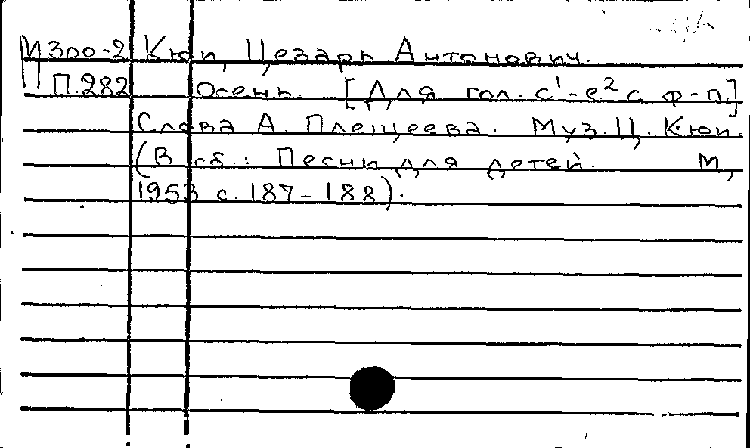 М3по-2 Кюи, Цезарь Антонович.
П.282 Осень. [Для гол. c¹-e² с ф-п.]
Слова А. Плещеева. Муз. Ц. Кюи.
(В сб.: Песни для детей. М,
1953 с. 187-188).